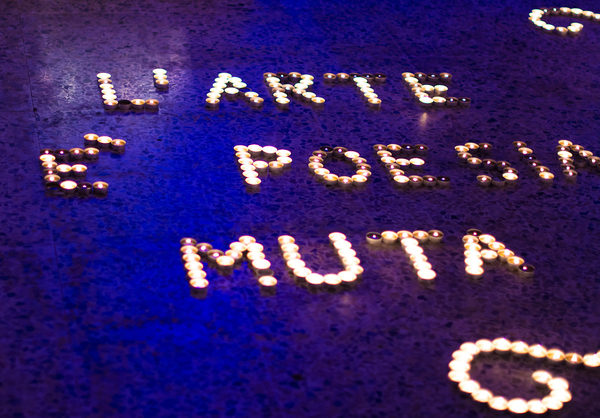 L'ARTE
È POESIA
MUTA